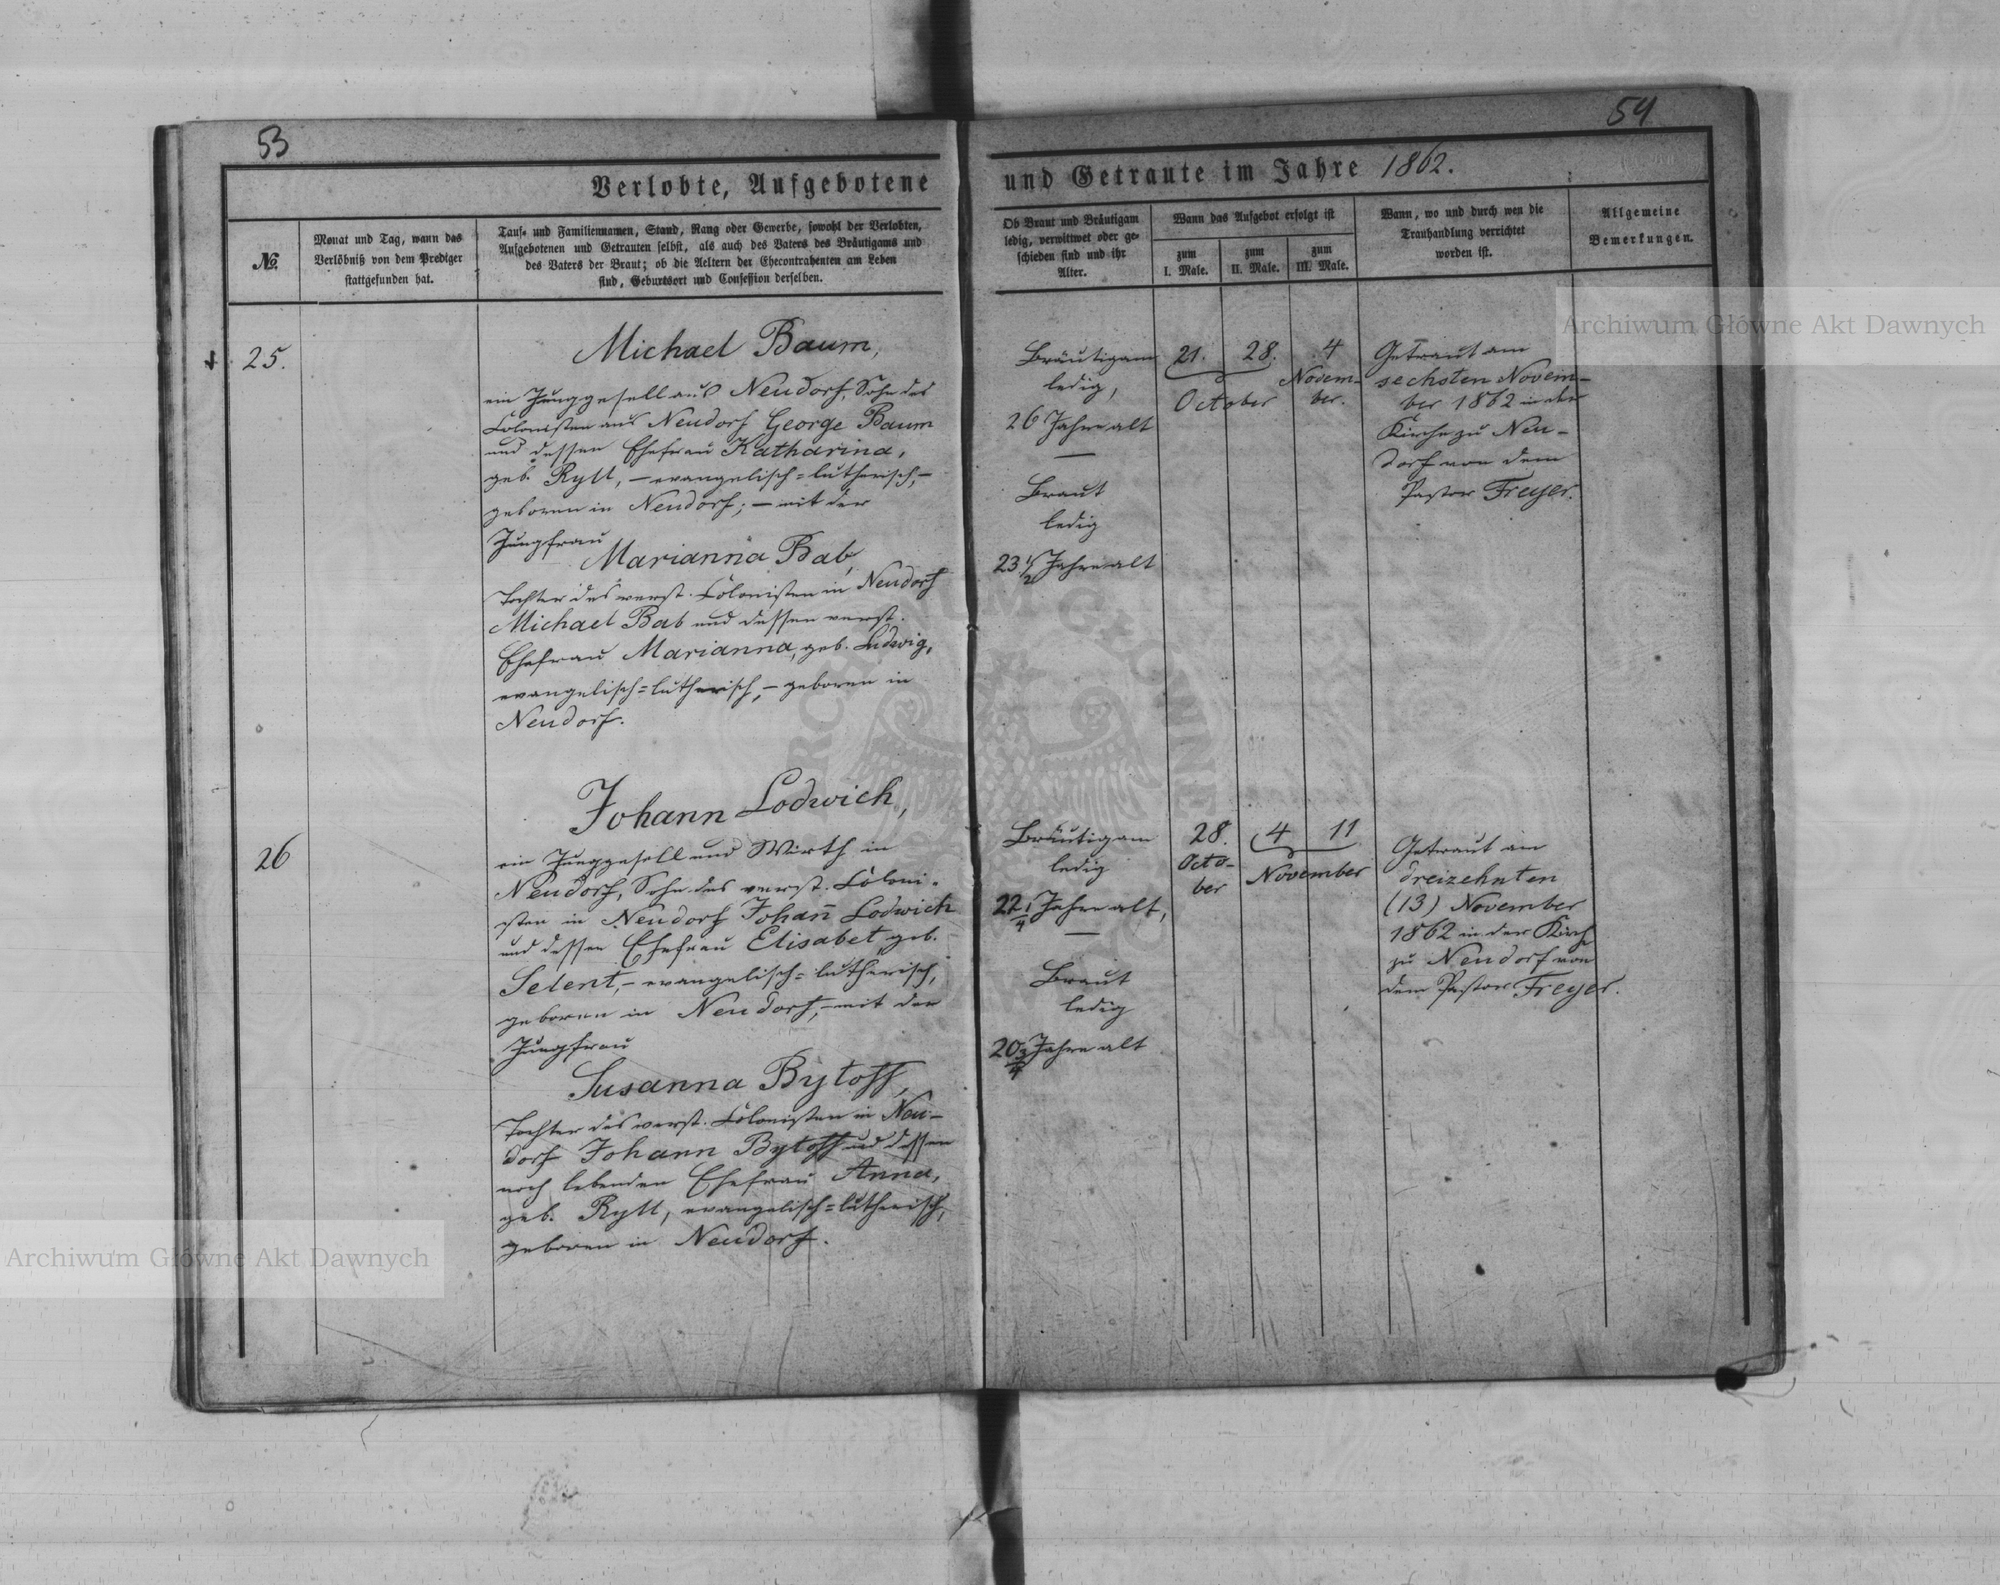 53
Verlobte, Aufgebotene
№
Monat und Tag, wann das
Verlöbniß von dem Prediger
stattgefunden hat.
Tauf- und Familiennamen, Stand, Rang oder Gewerbe, sowohl der Verlobten,
Aufgebotenen und Getrauten selbst, als auch des Vaters des Bräutigams und
des Vaters der Braut; ob die Aeltern der Ehecontrahenten am Leben
sind, Geburtsort und Confession derselben.
25.
Michael Baum,
ein Junggesell aus Neudorf, Sohn des
Colonisten aus Neudorf George Baum
und dessen Ehefrau Katharina,
geb. Rytt, – evangelisch=lutherisch, –
geboren in Neudorf; – mit der
Jungfrau
Marianna Bab,
Tochter des verst. Colonisten in Neudorf
Michael Bab und dessen verst.
Ehefrau Marianna, geb. Ludwig,
evangelisch=lutherisch, – geboren in
Neudorf.
26
Johann Lodwich,
ein Junggesell und Wirth in
Neudorf, Sohn des verst. Coloni-
sten in Neudorf Johañ Lodwich
und dessen Ehefrau Elisabet, geb.
Selent, – evangelisch=lutherisch,
geboren in Neudorf, – mit der
Jungfrau
Susanna Bytoff,
Tochter des verst. Colonisten in Neu-
dorf Johann Bytoff und dessen
noch lebenden Ehefrau Anna,
geb. Rytt, evangelisch=lutherisch,
geboren in Neudorf.
54
und Getraute im Jahre 1862.
Ob Braut und Bräutigam
ledig, verwittwet oder ge-
schieden sind und ihr
Alter.
Wann das Aufgebot erfolgt ist
zum
I. Male.
zum
II. Male.
zum
III. Male.
Wann, wo und durch wen die
Trauhandlung verrichtet
worden ist.
Allgemeine
Bemerkungen.
Bräutigam
ledig,
26 Jahre alt
—
Braut
ledig
23 1/2 Jahre alt
21. 28.
October
4
Novem-
ber.
Getraut am
sechsten Novem-
ber 1862 in der
Kirche zu Neu-
dorf von dem
Pastor Freyer.
Bräutigam
ledig
22 1/4 Jahre alt,
—
Braut
ledig
20 3/4 Jahre alt
28.
Octo-
ber
4 11
November
Getraut am
dreizehnten
(13) November
1862 in der Kirche
zu Neudorf von
dem Pastor Freyer.
Archiwum Główne Akt Dawnych
Archiwum Główne Akt Dawnych